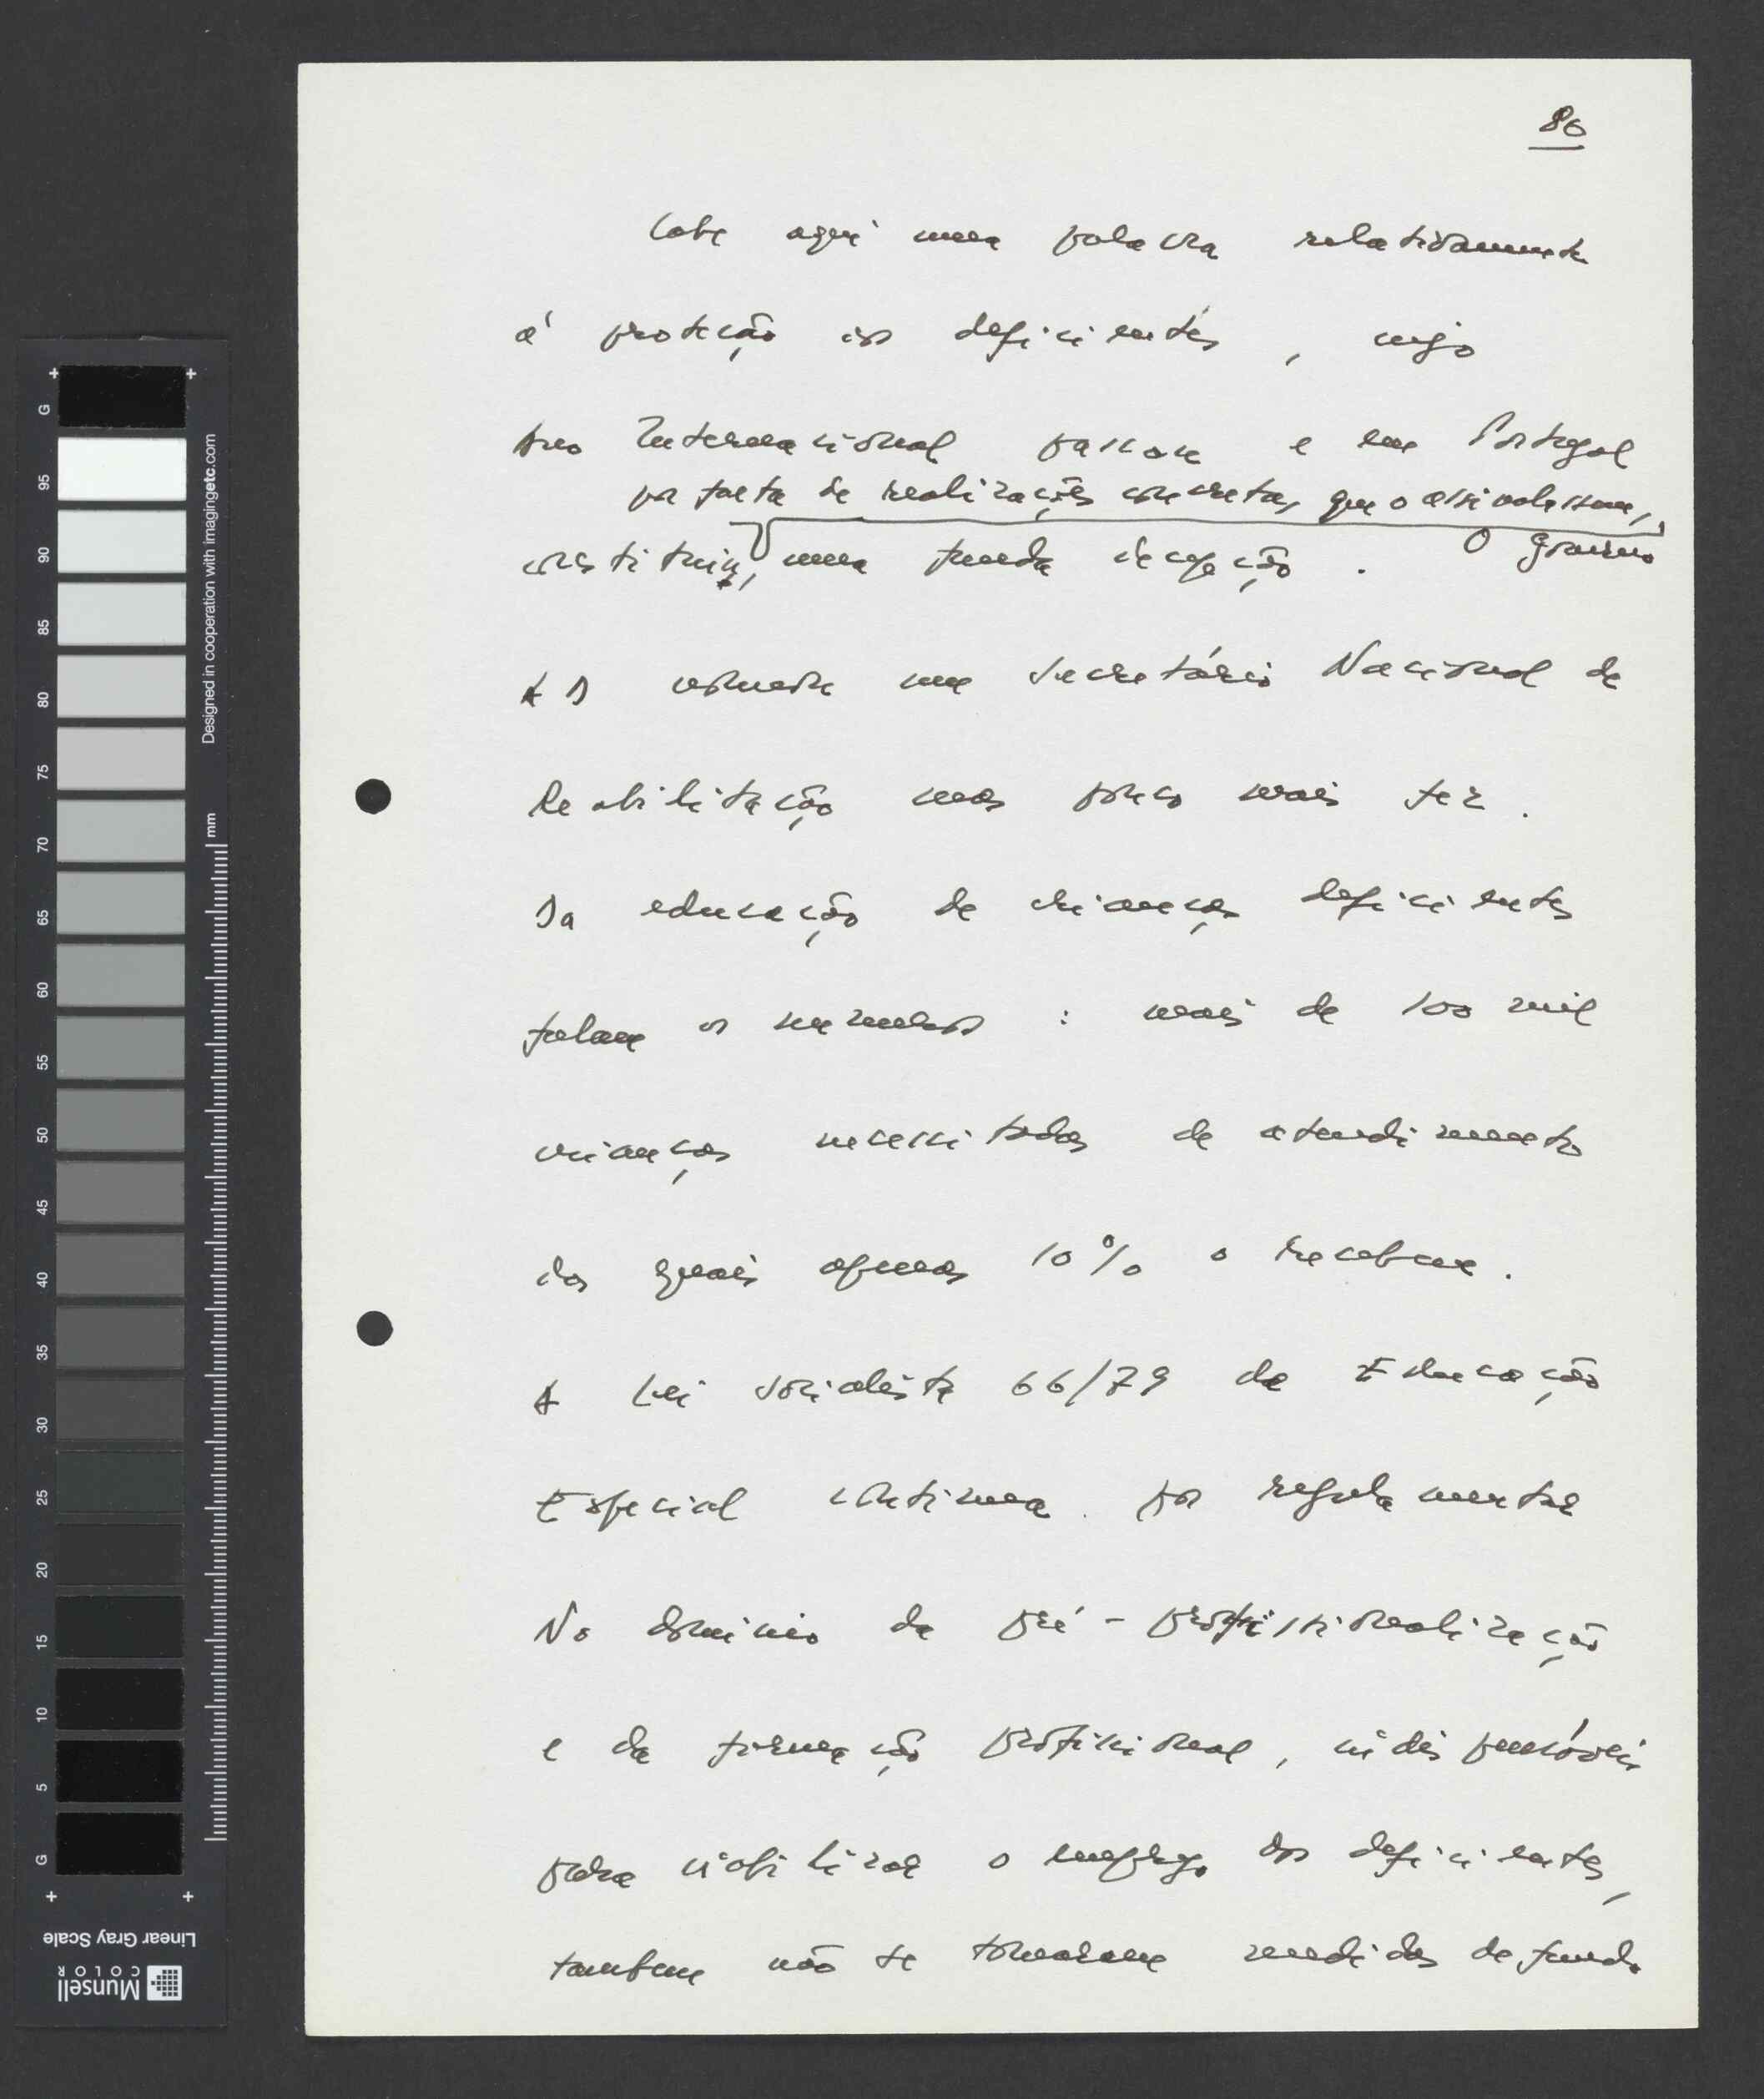 80
Cabe aqui uma palavra relativamente
à proteção aos deficientes, cujo
Ano Internacional passou e em Portugal
por falta de realizações concretas que o assinalassem,
constituiu, uma funda decepção. O governo
AD nomeou um Secretário Nacional de
Reabilitação mas pouco mais fez.
Da educação de crianças deficientes
falam os numeros : mais de 100 mil
crianças necessitadas de atendimento
das quais apenas 10% o recebem.
A Lei socialista 66/79 da Educação
Especial continua por regulamentar
No dominio da pré-profissionalização
e da formação profissional, indispensáveis
para viabilizar o emprego dos deficientes,
tambem não se tomaram medidas de fundo
G
95
90
85
80
75
70
65
60
55
50
45
40
35
30
25
20
15
10
5
G
mm
Designed in cooperation with imagingetc.com
Linear Gray Scale
Munsell
COLOR